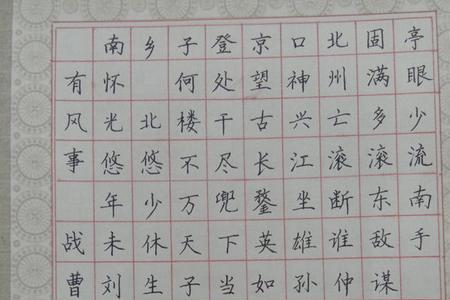 南乡子登京口北固亭
有怀 何处望神州满眼
风光北楼千古兴亡多少
事悠悠不尽长江滚滚流
年少万兜鍪坐断东南
战未休天下英雄谁敌手
曹刘生子当如孙仲谋